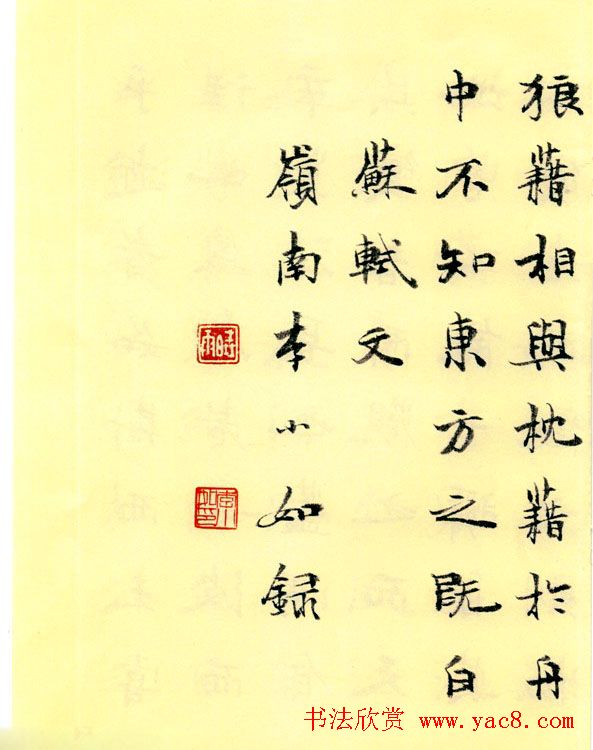 狼藉相與枕藉於舟
中不知東方之既白
蘇軾文
嶺南李小如録
時雨
书法欣赏 www.yac8.com